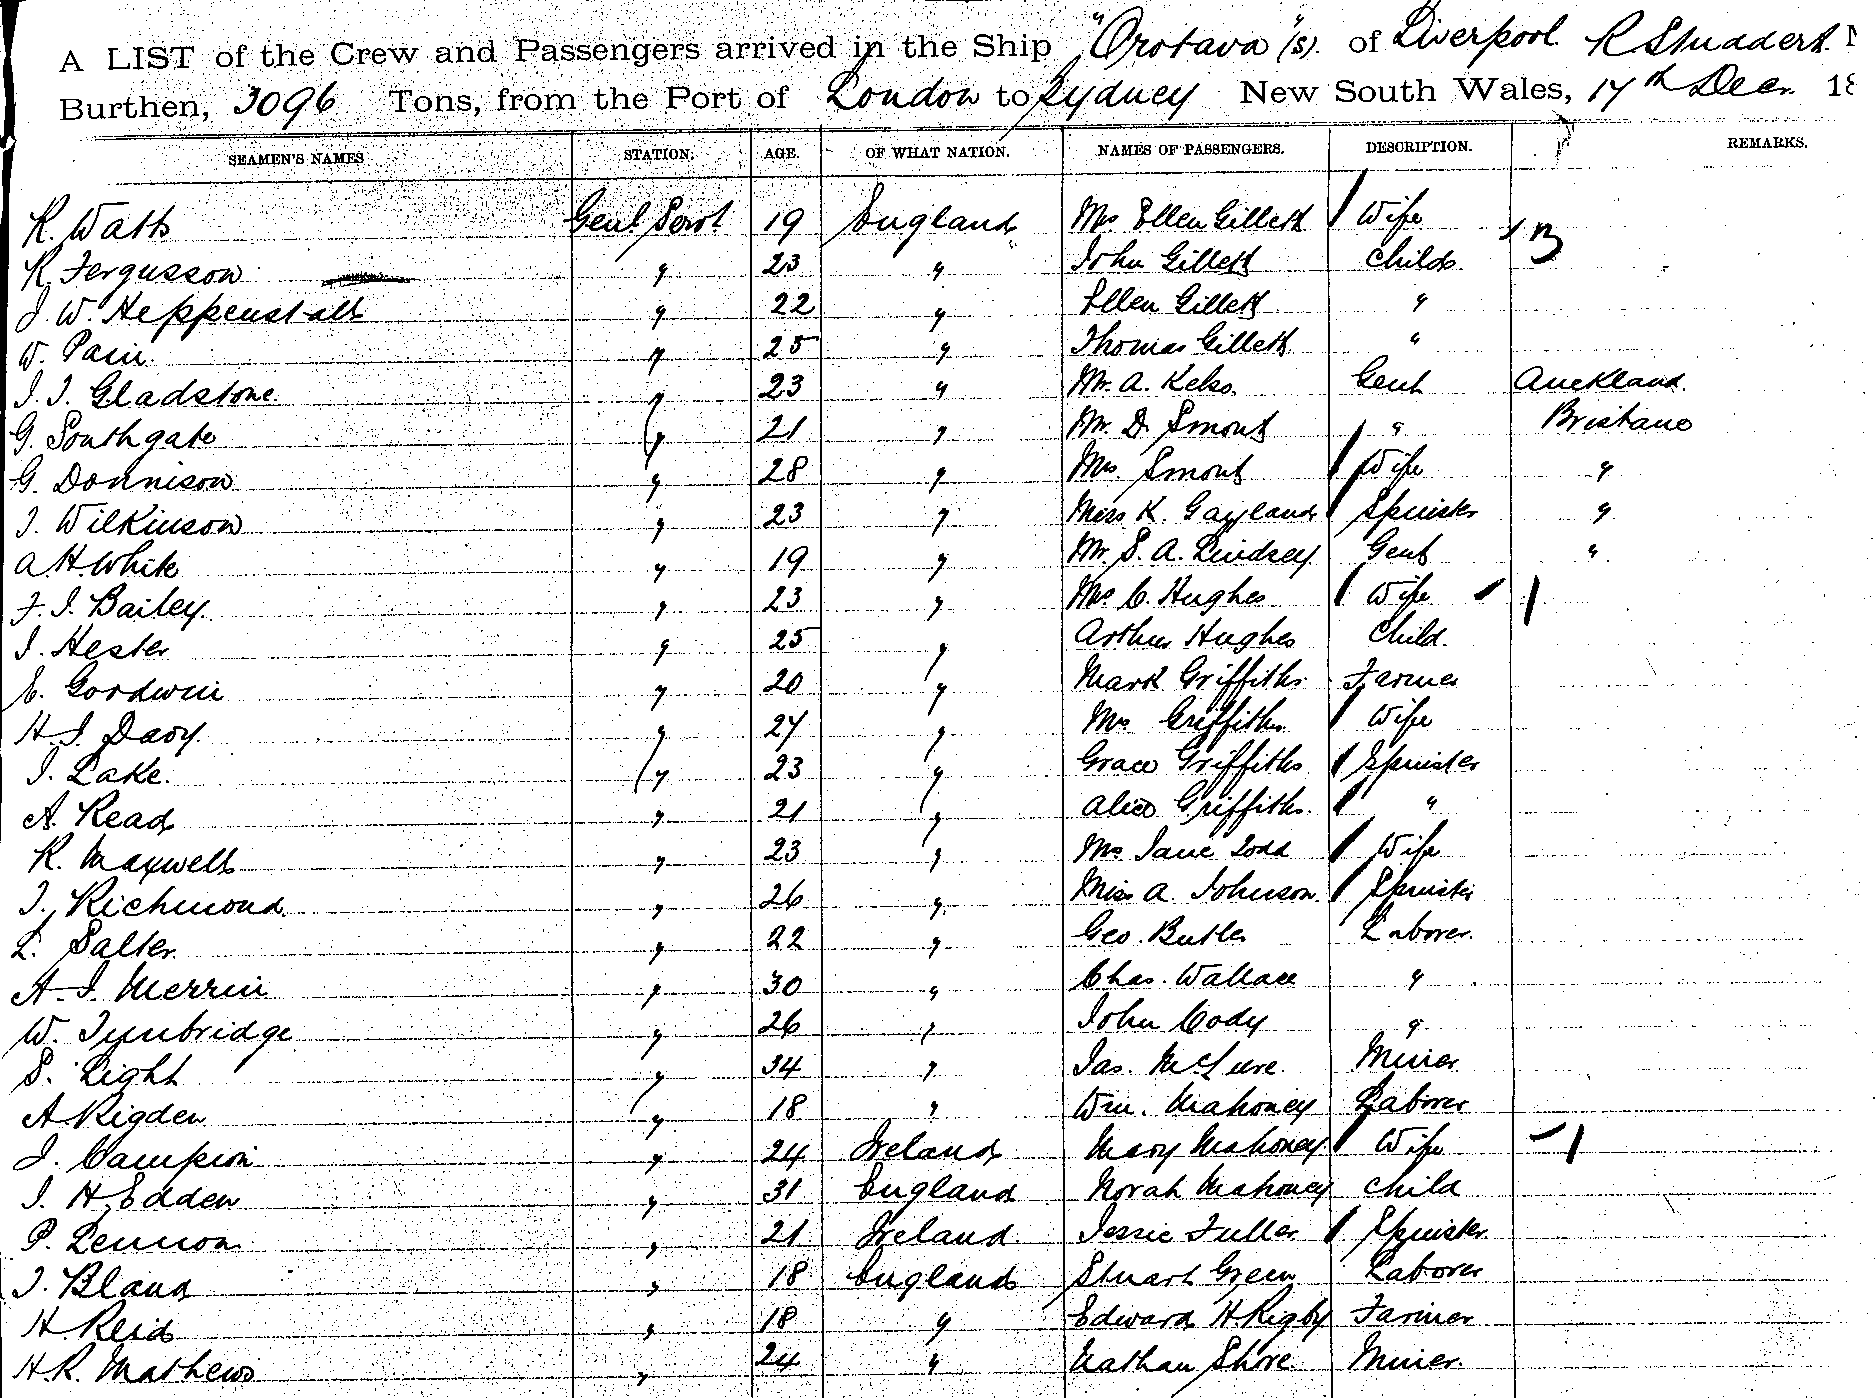 A LIST of the Crew and Passengers arrived in the Ship "Orotava" (s). of Liverpool. R Studdert.
Burthen, 3096 Tons, from the Port of London to Sydney New South Wales, 17th Dec. 18
SEAMEN'S NAMES STATION. AGE. OF WHAT NATION. NAMES OF PASSENGERS. DESCRIPTION. REMARKS.
R. Watts Genl Servt 19 England Mrs Ellen Gillett Wife 3
R Fergusson " 23 " John Gillett Child
J. W. Heppenstall " 22 " Ellen Gillett "
W. Pain " 25 " Thomas Gillett "
J. J. Gladstone " 23 " Mr. A. Kelso Gent Auckland.
G. Southgate " 21 " Mr. D. Smout " Brisbane
G. Donnison " 28 " Mrs Smout Wife "
J. Wilkinson " 23 " Miss K. Gayland Spinster "
A. H. White " 19 " Mr. S. A. Lindsey Gent "
F. J. Bailey " 23 " Mrs C. Hughes Wife 1
J. Hester " 25 " Arthur Hughes Child.
E. Goodwin " 20 " Mark Griffiths Farmer
H. J. Davy " 27 " Mrs Griffiths Wife
J. Lake. " 23 " Grace Griffiths Spinster
A. Read " 21 " Alice Griffiths "
R. Maxwell " 23 " Mrs Jane Todd Wife
J. Richmond " 26 " Miss A Johnson Spinster
L. Salter " 22 " Geo. Butler Laborer.
A. J. Merrin " 30 " Chas. Wallace "
W. Tynbridge " 26 " John Cody "
S. Light " 34 " Jas. McLure Miner
A Rigden " 18 " Wm. Mahoney Laborer
J. Campion " 24 Ireland Mary Mahoney Wife 1
J. H Edden " 31 England Norah Mahoney Child
P. Lennon " 21 Ireland Jessie Fuller Spinster
J. Bland " 18 England Stuart Green Laborer
H Reid " 18 " Edward H Rigby Farmer
H. R. Mathews " 24 " Nathan Shore Miner.